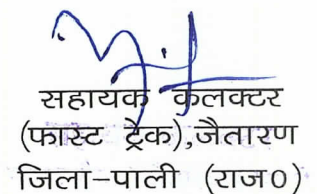 सहायक कलक्टर
(फास्ट ट्रैक),जैतारण
जिला-पाली (राज0)